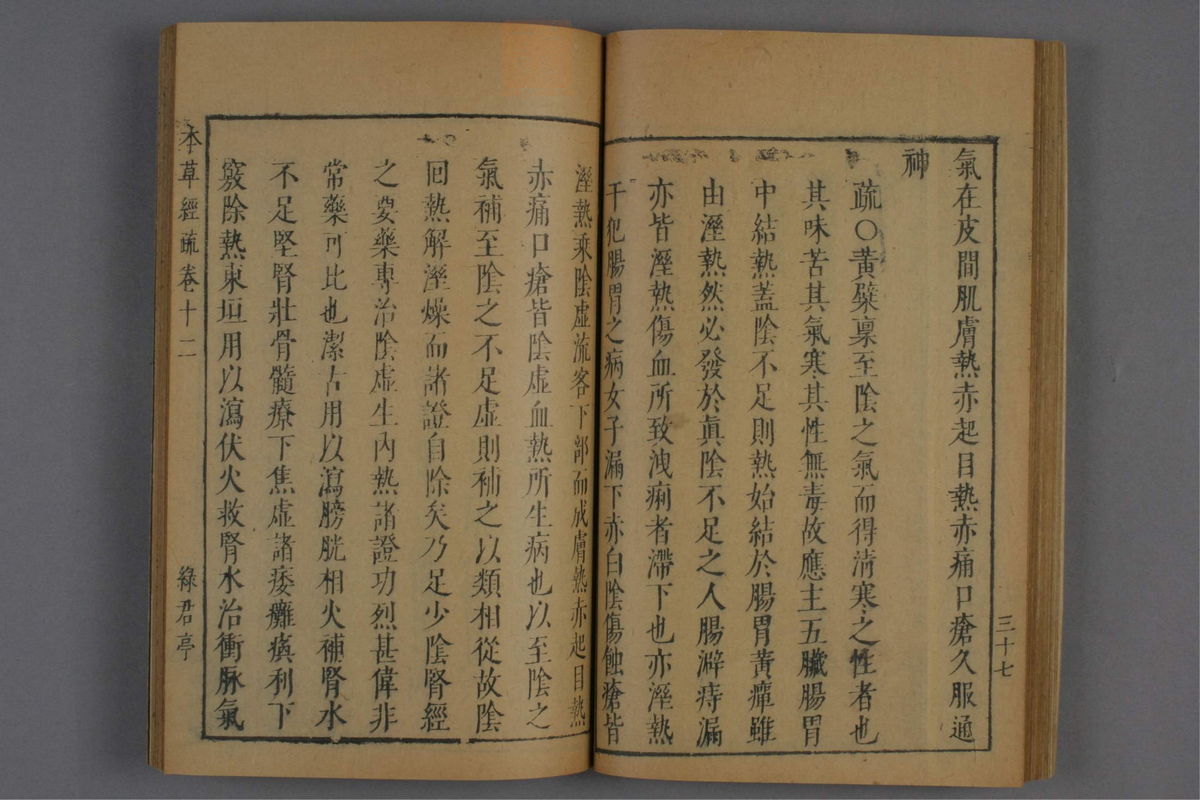 氣在皮間肌膚熱赤起目熱赤痛口瘡久服通
神
疏〇黃蘗稟至陰之氣而得清寒之性者也
其味苦其氣寒其性無毒故應主五臟腸胃
中結熱蓋陰不足則熱始結於腸胃黃癉雖
由溼熱然必發於眞陰不足之人腸澼痔漏
亦皆溼熱傷血所致洩痢者滯下也亦溼熱
干犯腸胃之病女子漏下赤白陰傷蝕瘡皆
三十七
溼熱乘陰虛流客下部而成膚熱赤起目熱
赤痛口瘡皆陰虛血熱所生病也以至陰之
氣補至陰之不足虛則補之以類相從故陰
囘熱解溼燥而諸證自除矣乃足少陰腎經
之要藥專治陰虛生內熱諸證功烈甚偉非
常藥可比也潔古用以瀉膀胱相火補腎水
不足堅腎壯骨髓療下焦虛諸痿癱瘓利下
竅除熱東垣用以瀉伏火救腎水治衝脉氣
本草經疏卷十二
綠君亭